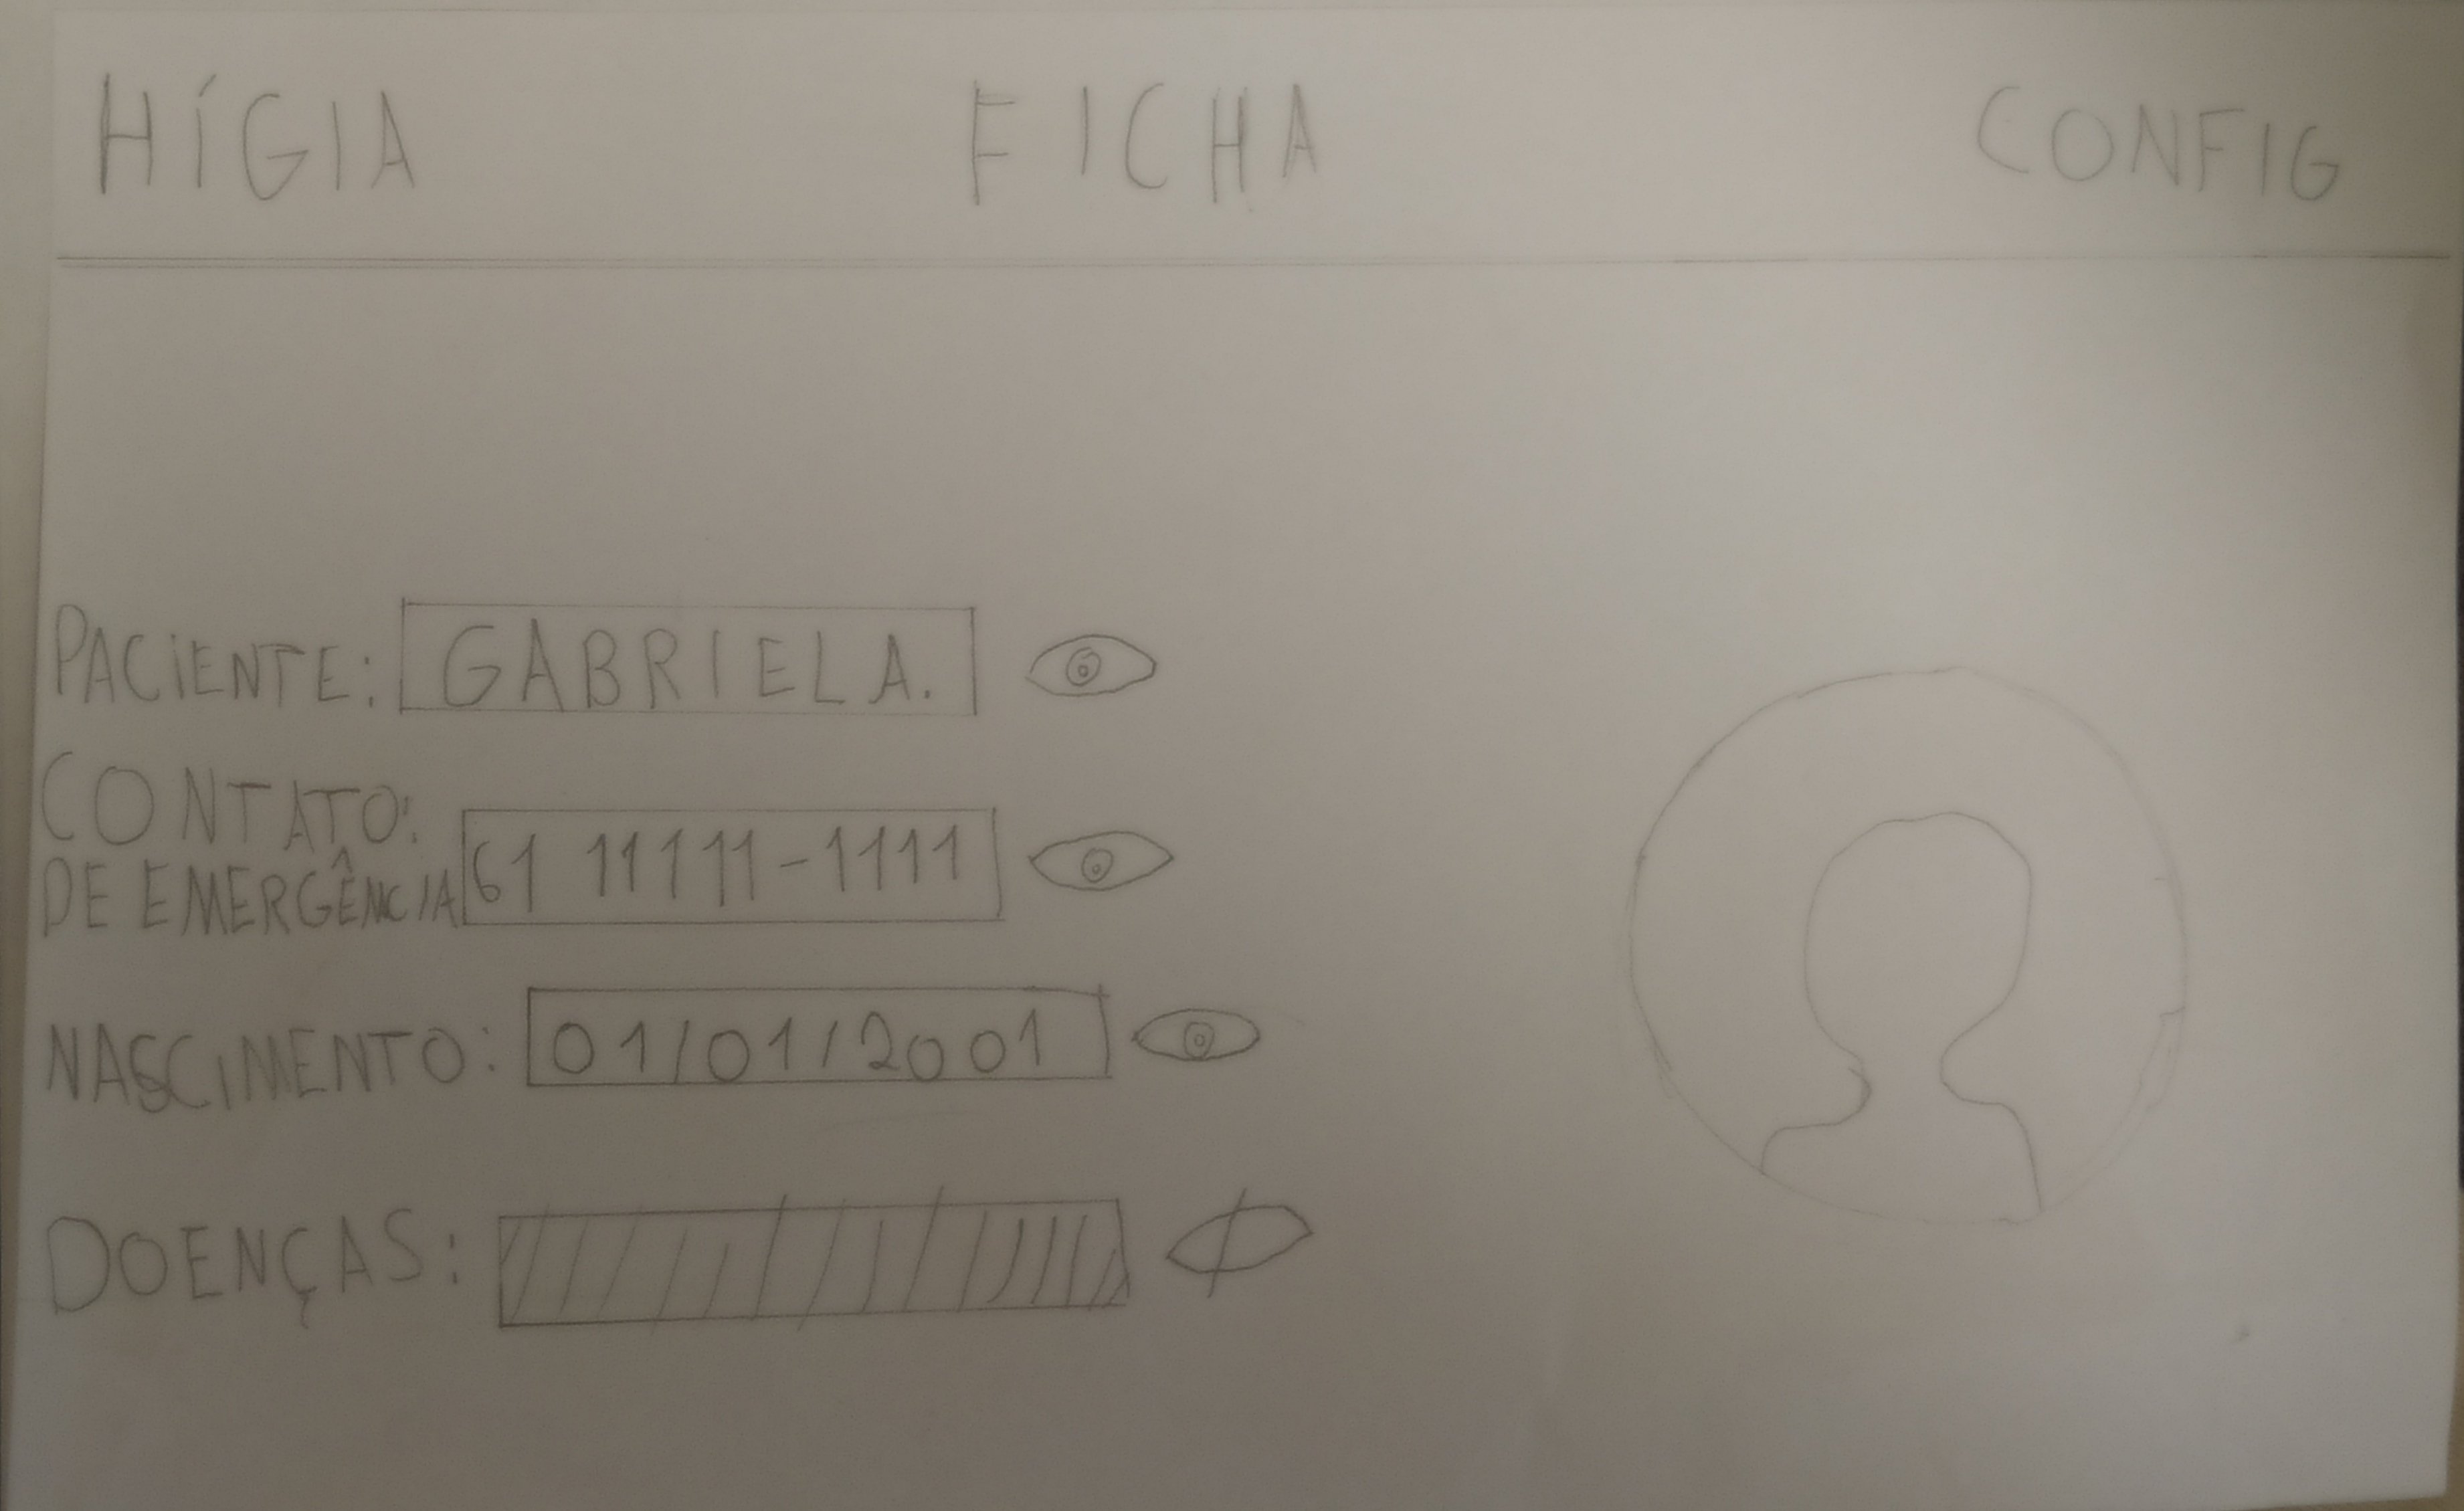 HÍGIA FICHA CONFIG
PACIENTE: GABRIELA.
CONTATO:
DE EMERGÊNCIA 61 11111-1111
NASCIMENTO: 01/01/2001
DOENÇAS: